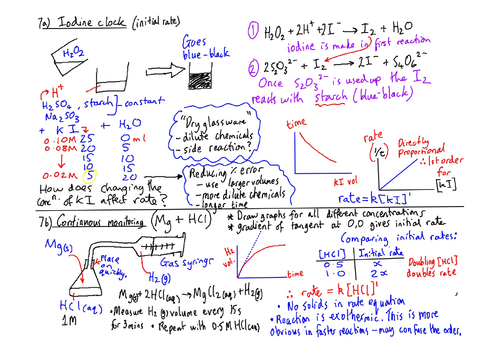 7a) Iodine clock (initial rate)
H₂O₂
Goes
blue-black
H⁺
H₂SO₄, starch → constant
Na₂S₂O₃
+ KI + H₂O
0.10M 25 0 ml
0.08M 20 5
15 10
10 15
0.02M 5 20
How does changing the
concⁿ of KI affect rate?
"Dry glassware"
- dilute chemicals
- side reaction?
Reducing % error
- use larger volumes
- more dilute chemicals
- longer time
① H₂O₂ + 2H⁺ + 2I⁻ → I₂ + H₂O
iodine is made in first reaction
② 2S₂O₃²⁻ + I₂ → 2I⁻ + S₄O₆²⁻
Once S₂O₃²⁻ is used up the I₂
reacts with starch (blue-black)
time
KI vol
rate
(1/t)
Directly
proportional
∴ 1st order
for
[KI]
[KI]
rate = k[KI]¹
7b) Continuous monitoring (Mg + HCl)
Mg(s)
Place
on
quickly.
H₂(g)
Gas syringe
HCl(aq)
1M
Mg(s) + 2HCl(aq) → MgCl₂(aq) + H₂(g)
• Measure H₂(g) volume every 15s
for 3mins • Repeat with 0.5M HCl(aq)
* Draw graphs for all different concentrations
* gradient of tangent at 0,0 gives initial rate
H₂
vol
time
Comparing initial rates:
[HCl] Initial rate
0.5 x
1.0 2x
Doubling [HCl]
doubles rate
∴ rate = k[HCl]¹
• No solids in rate equation
• Reaction is exothermic. This is more
obvious in faster reactions - may confuse the order.